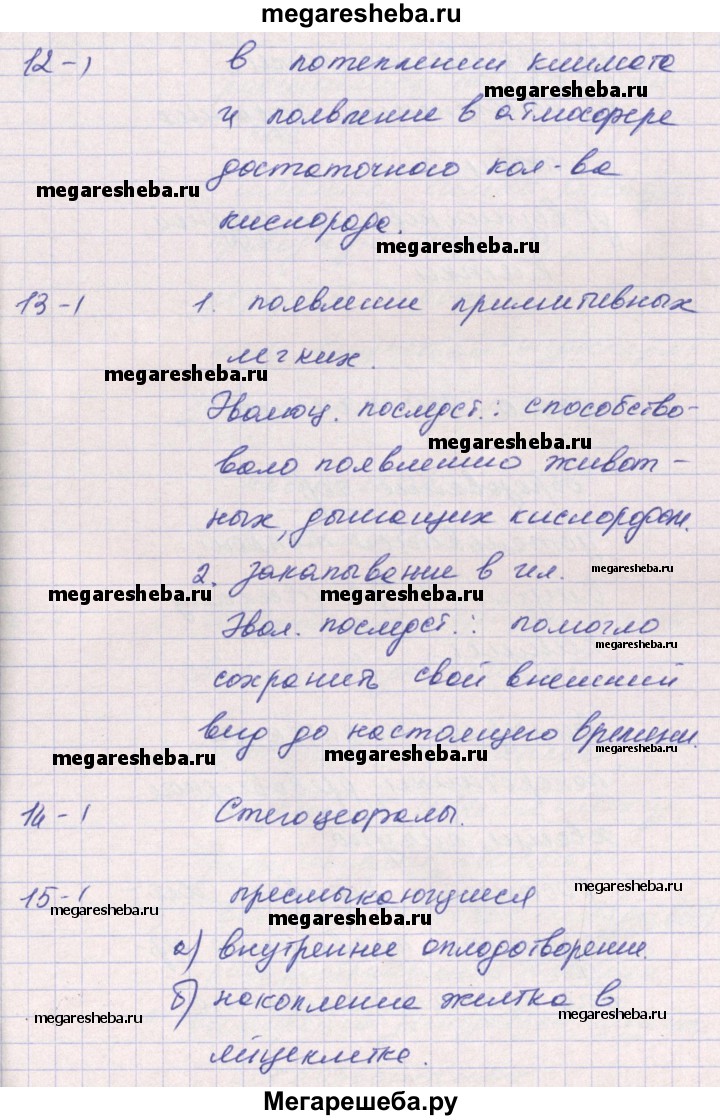 megaresheba.ru
12-1 в потеплении климата
megaresheba.ru
и появление в атмосфере
достаточного кол-ва
megaresheba.ru
кислорода.
megaresheba.ru
13-1 1. появление примитивных
легких.
megaresheba.ru
Эволюц. последст.: способство-
megaresheba.ru
вало появлению живот-
ных, дышащих кислородом.
2. закапывание в ил.
megaresheba.ru
megaresheba.ru megaresheba.ru
Эвол. последст.: помогло
megaresheba.ru
сохранить свой внешний
вид до настоящего времени.
megaresheba.ru megaresheba.ru megaresheba.ru
14-1 Стегоцефалы.
15-1 пресмыкающиеся
megaresheba.ru
megaresheba.ru megaresheba.ru
а) внутреннее оплодотворение.
б) накопление желтка в
megaresheba.ru megaresheba.ru
яйцеклетке.
Мегарешеба.ру